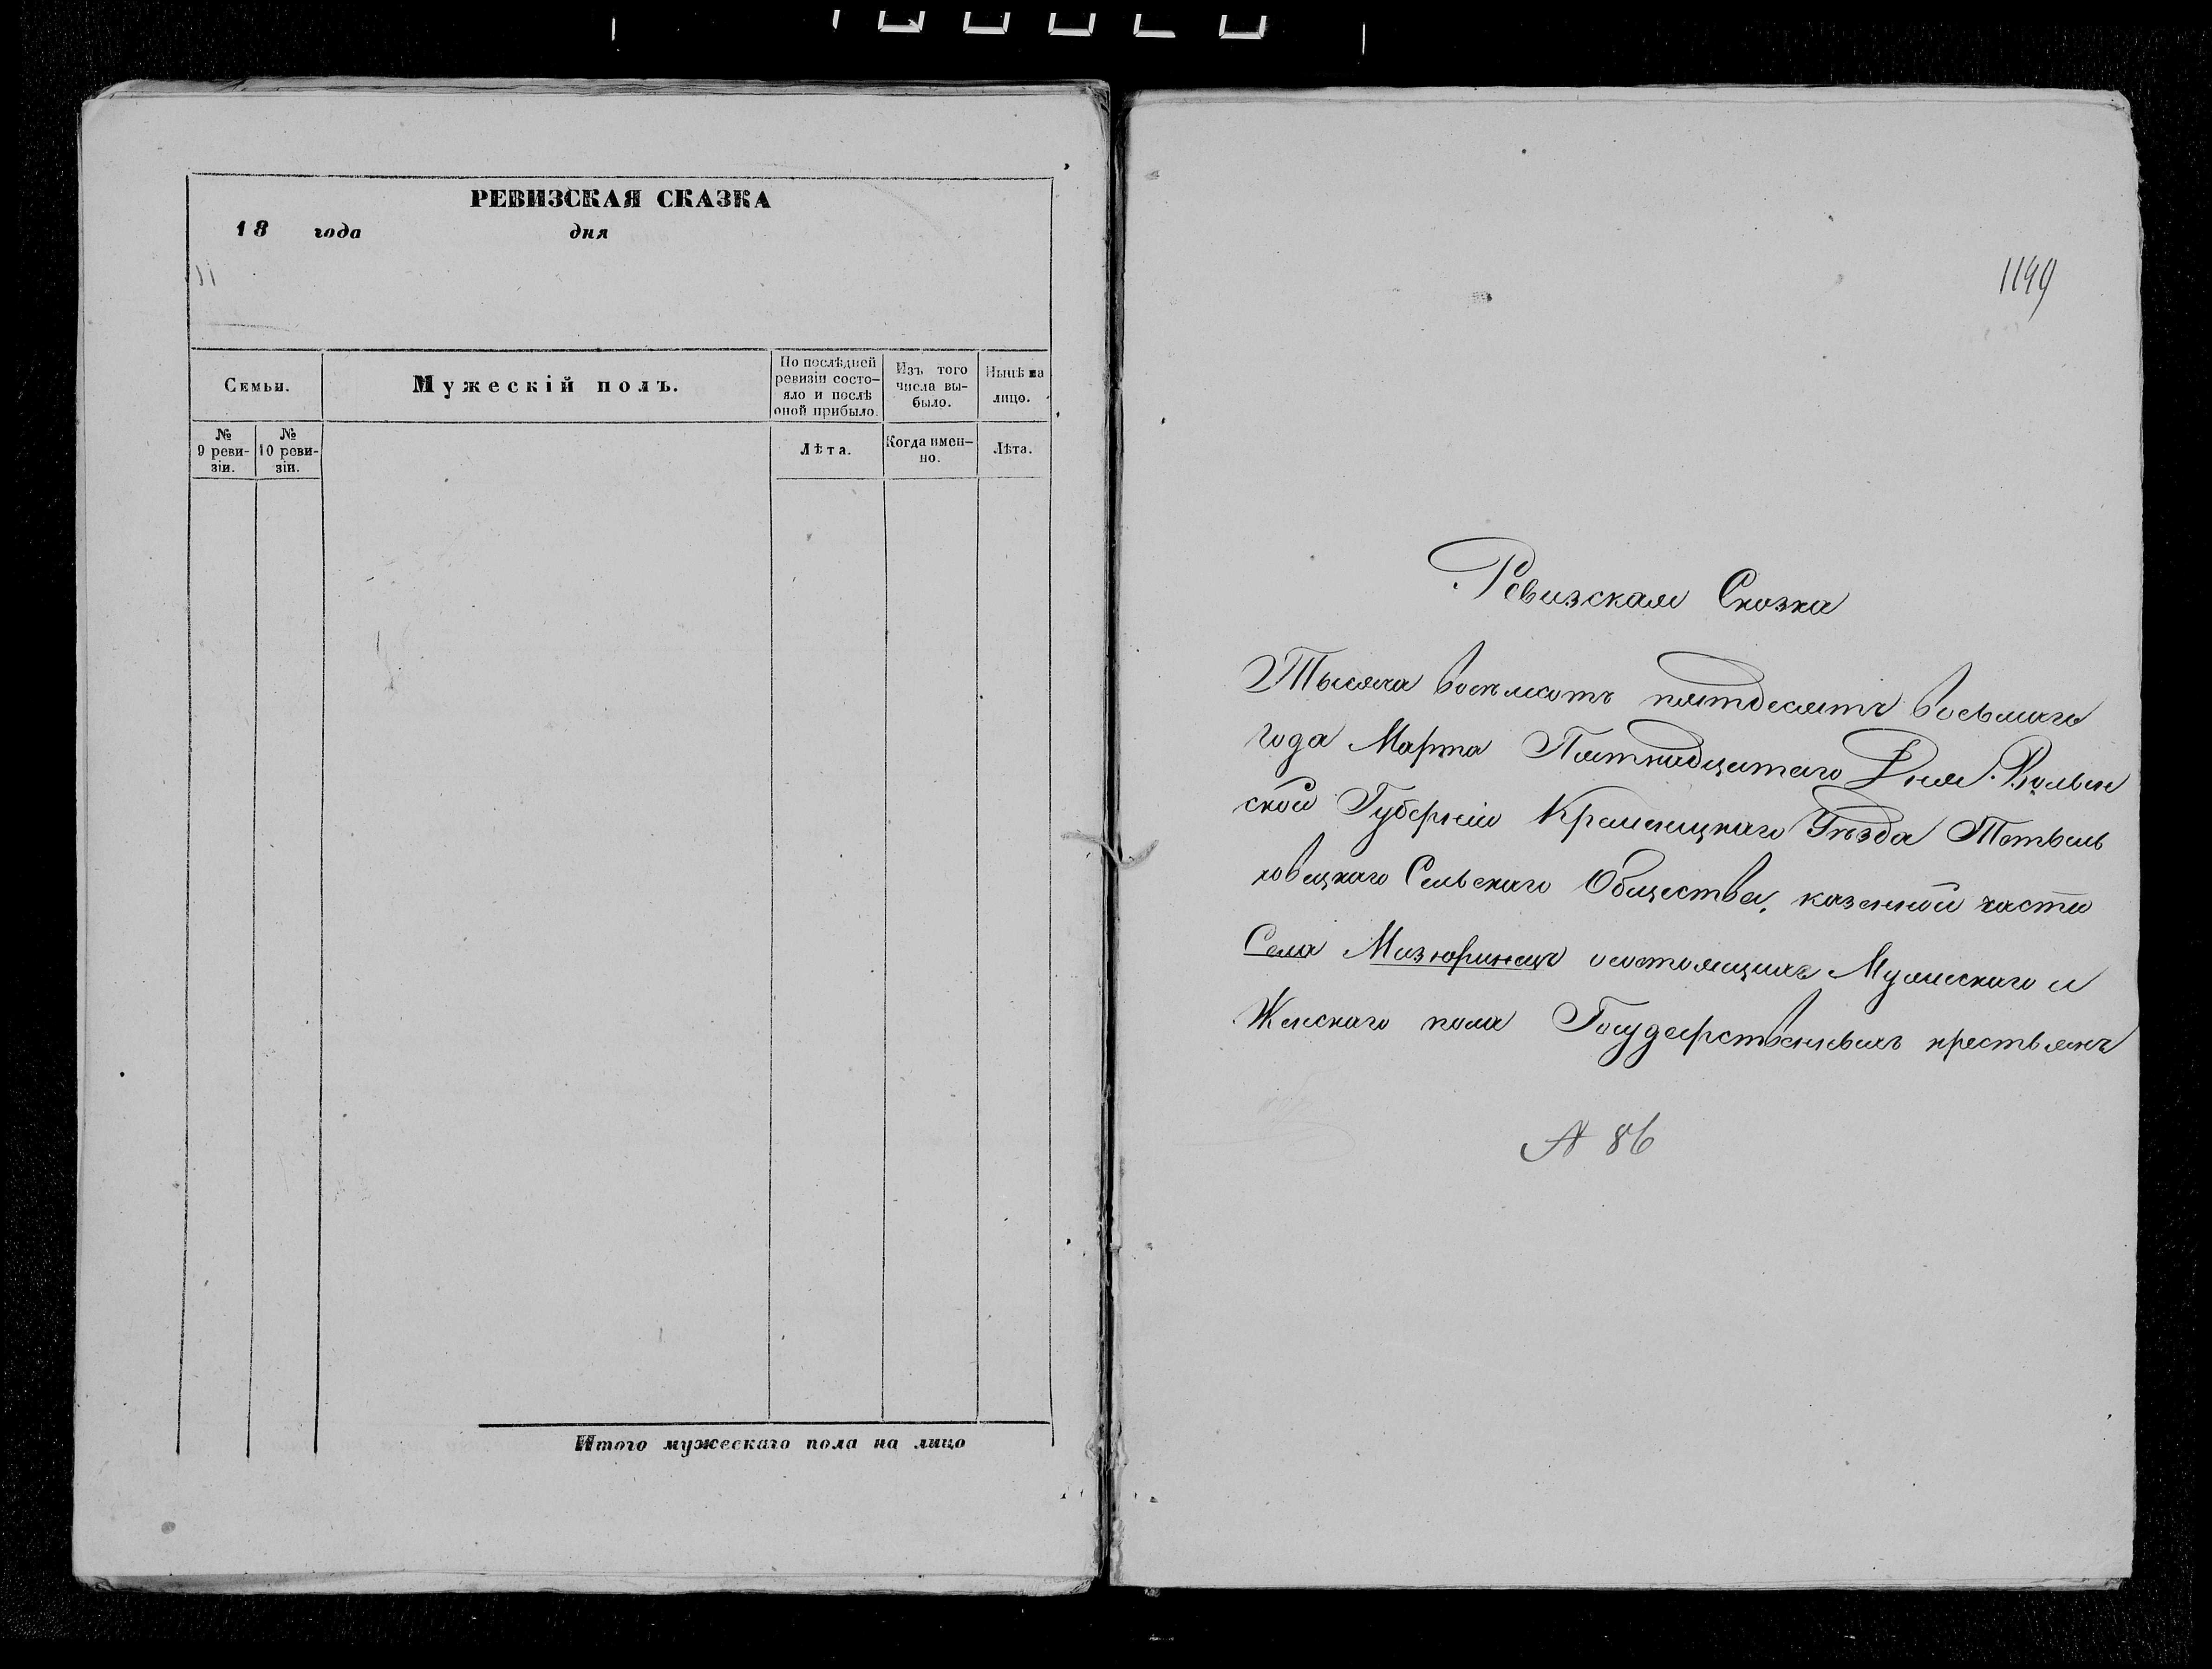 РЕВИЗСКАЯ СКАЗКА
18 года дня
Семьи.
Мужескій полъ.
По послѣдней
ревизіи состо-
яло и послѣ
оной прибыло.
Изъ того
числа вы-
было.
Нынѣ на
лицо.
№
9 реви-
зіи.
№
10 реви-
зіи.
Лѣта.
Когда имен-
но.
Лѣта.
Итого мужескаго пола на лицо
1149
Ревизская Сказка
Тысяча восьмсотъ пятдесятъ восьмаго
года Марта Пятнадцатаго Дня. Волын
ской Губерніи Кременецкаго Уѣзда Тетыль
ковецкаго Сельскаго Общества, казенной части
Села Мизюринецъ о состоящихъ Мужескаго и
Женскаго пола Государственныхъ крестьянъ
№ 86